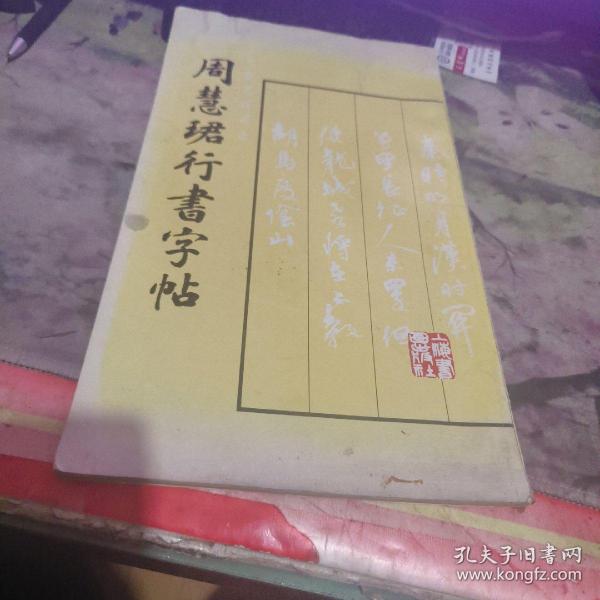 周慧珺行書字帖
秦時明月漢時関
萬里長征人未還但
使龍城飛將在不教
胡馬度陰山
上海書畫出版社
孔夫子旧书网
www.kongfz.com